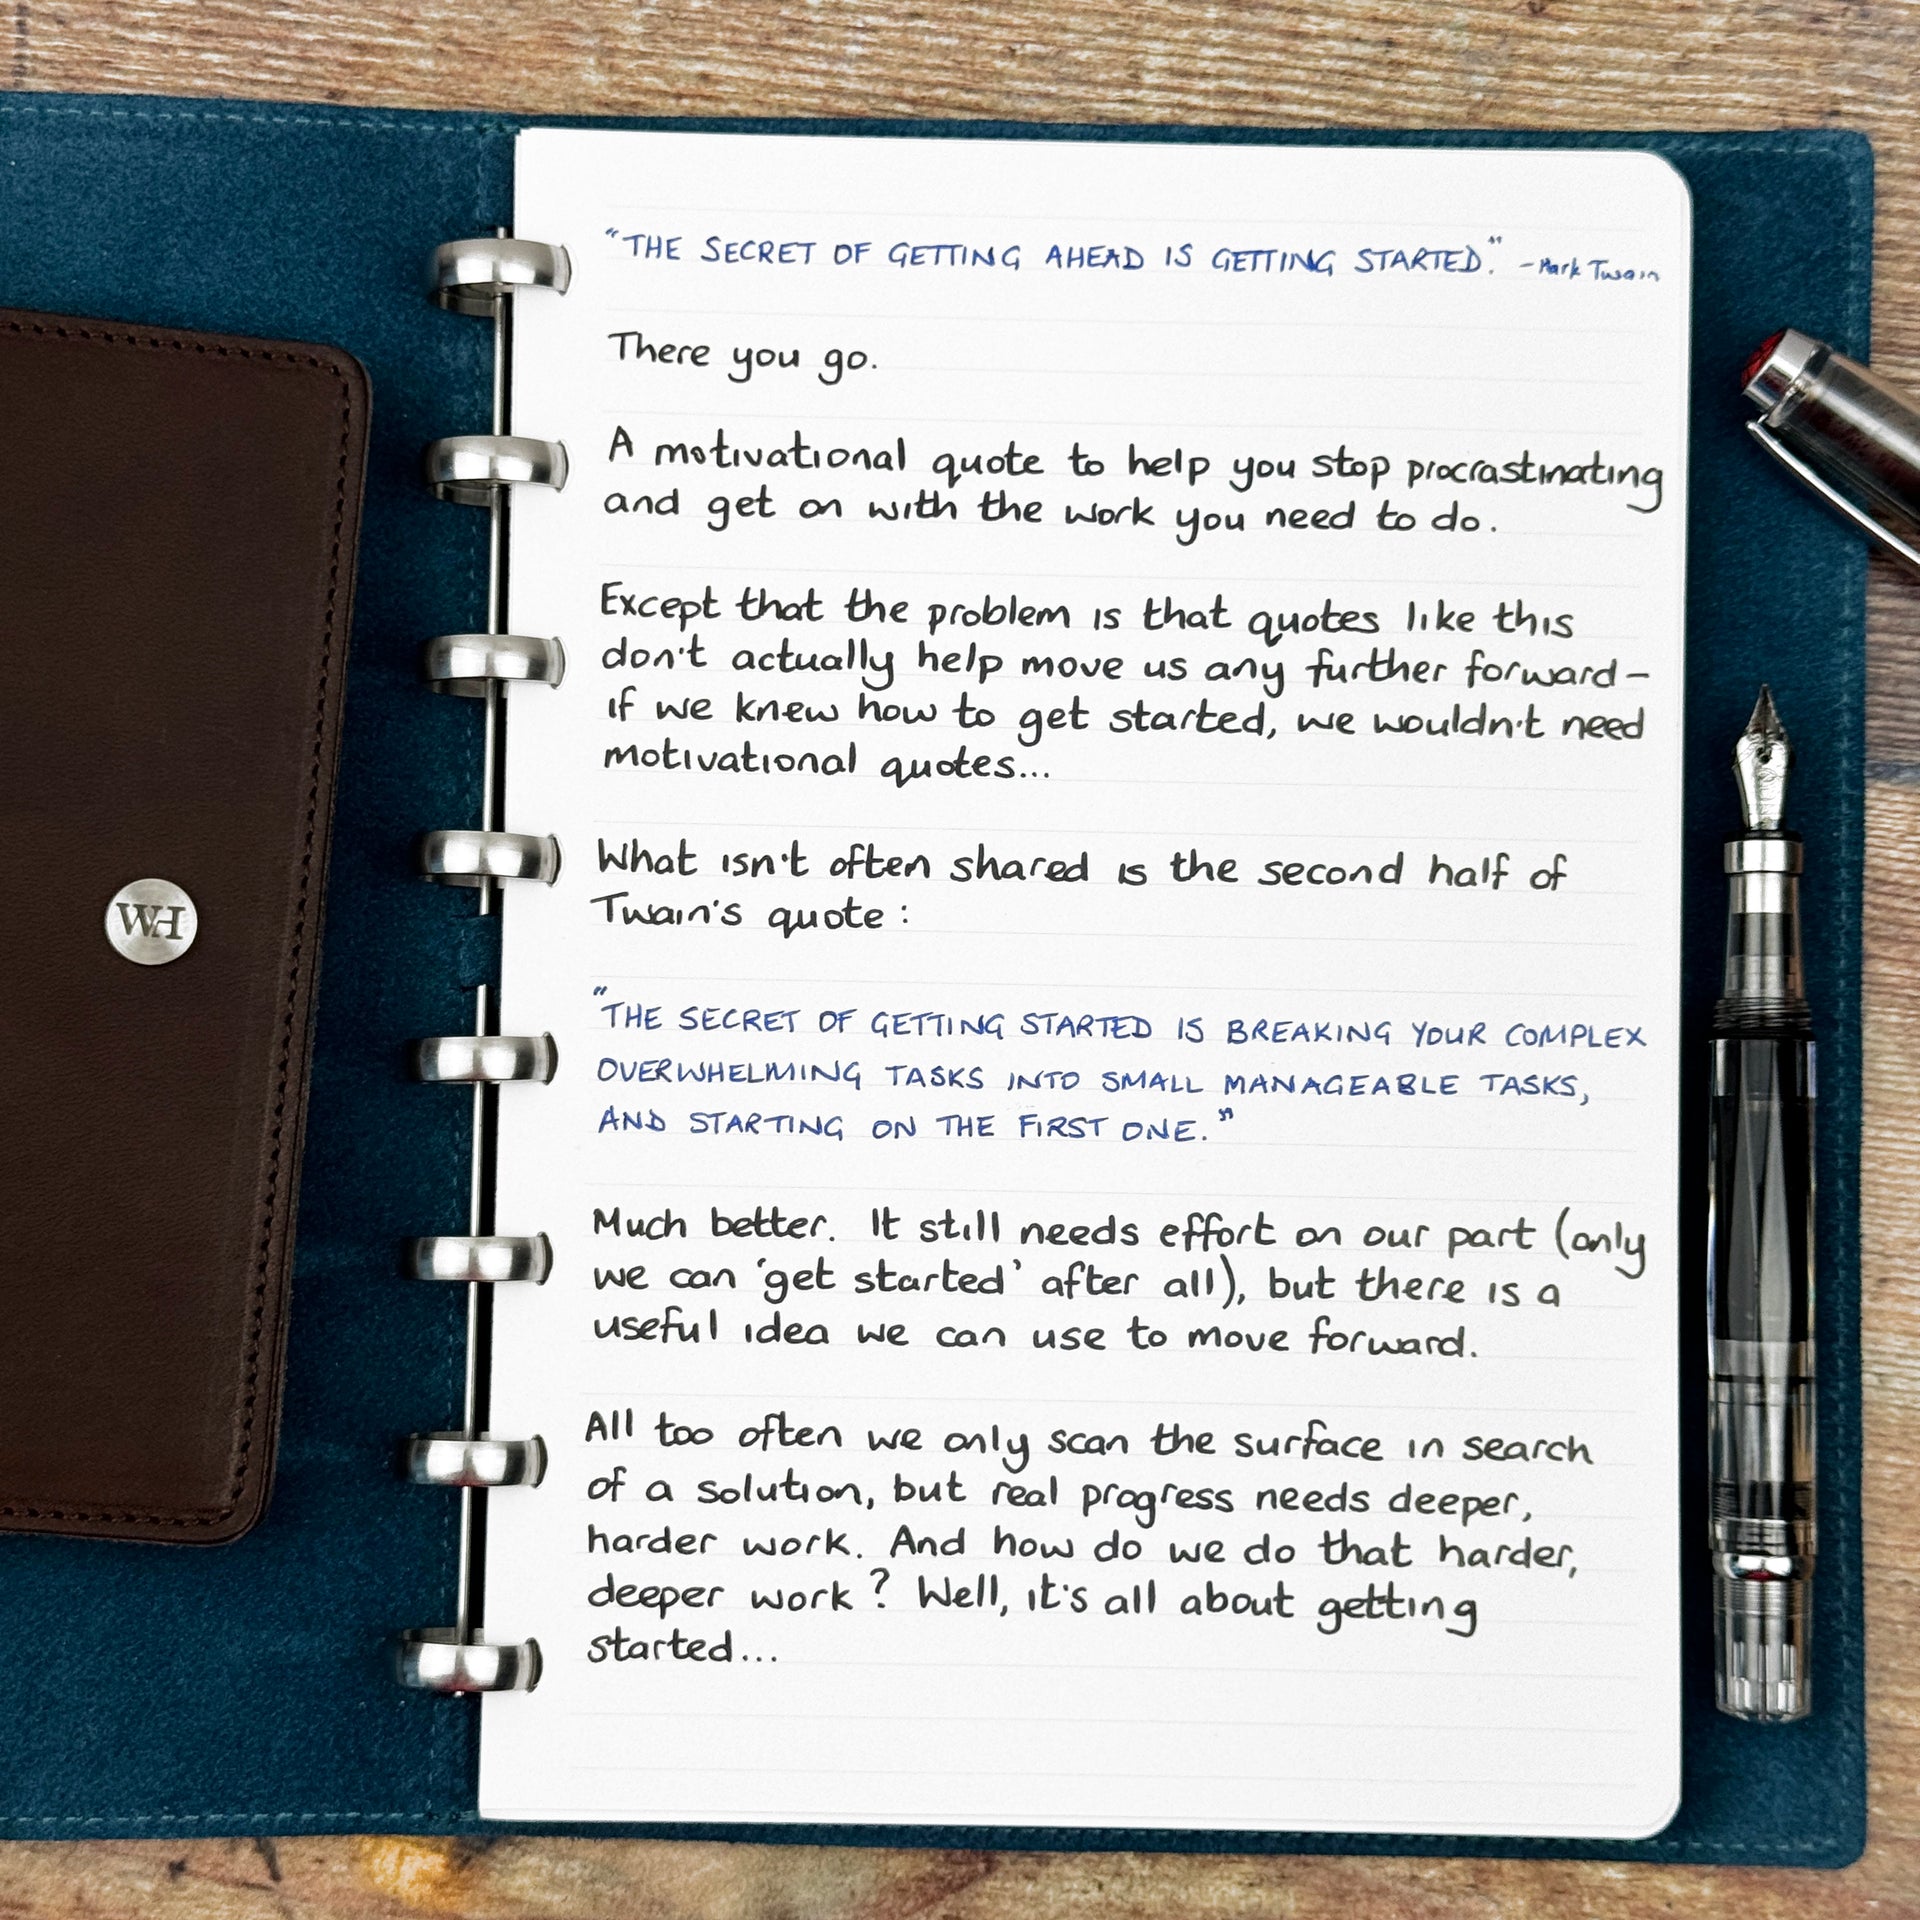 "THE SECRET OF GETTING AHEAD IS GETTING STARTED." - Mark Twain
There you go.
A motivational quote to help you stop procrastinating
and get on with the work you need to do.
Except that the problem is that quotes like this
don't actually help move us any further forward -
if we knew how to get started, we wouldn't need
motivational quotes...
What isn't often shared is the second half of
Twain's quote:
"THE SECRET OF GETTING STARTED IS BREAKING YOUR COMPLEX
OVERWHELMING TASKS INTO SMALL MANAGEABLE TASKS,
AND STARTING ON THE FIRST ONE."
Much better. It still needs effort on our part (only
we can 'get started' after all), but there is a
useful idea we can use to move forward.
All too often we only scan the surface in search
of a solution, but real progress needs deeper,
harder work. And how do we do that harder,
deeper work? Well, it's all about getting
started...
WH